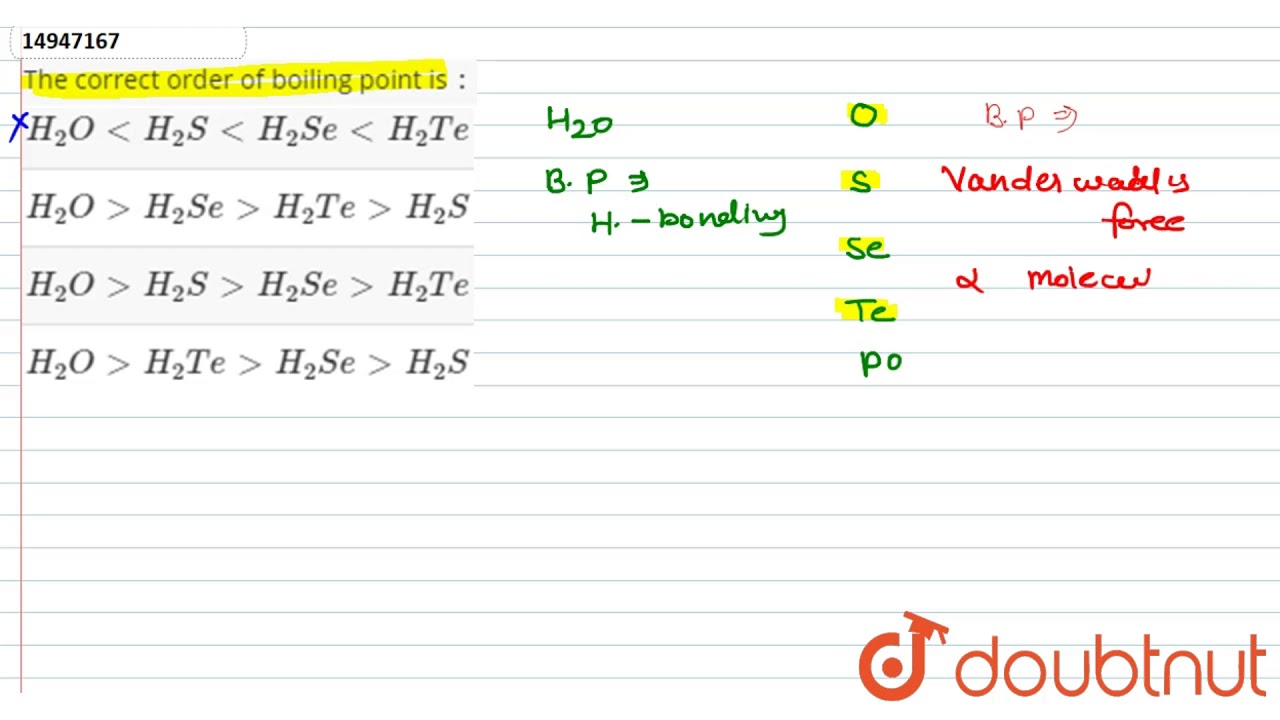 14947167
The correct order of boiling point is :
H₂O < H₂S < H₂Se < H₂Te
H₂O > H₂Se > H₂Te > H₂S
H₂O > H₂S > H₂Se > H₂Te
H₂O > H₂Te > H₂Se > H₂S
H₂O
B. P ⇒
H. - bonding
O
S
Se
Te
Po
B. P ⇒
Vander
force
α molecu
doubtnut